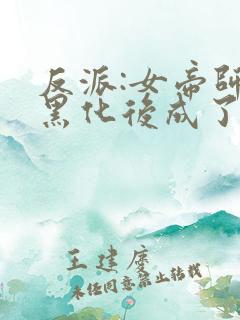 反派:女帝師
黑化後成了
王建度
未经同意禁止转载